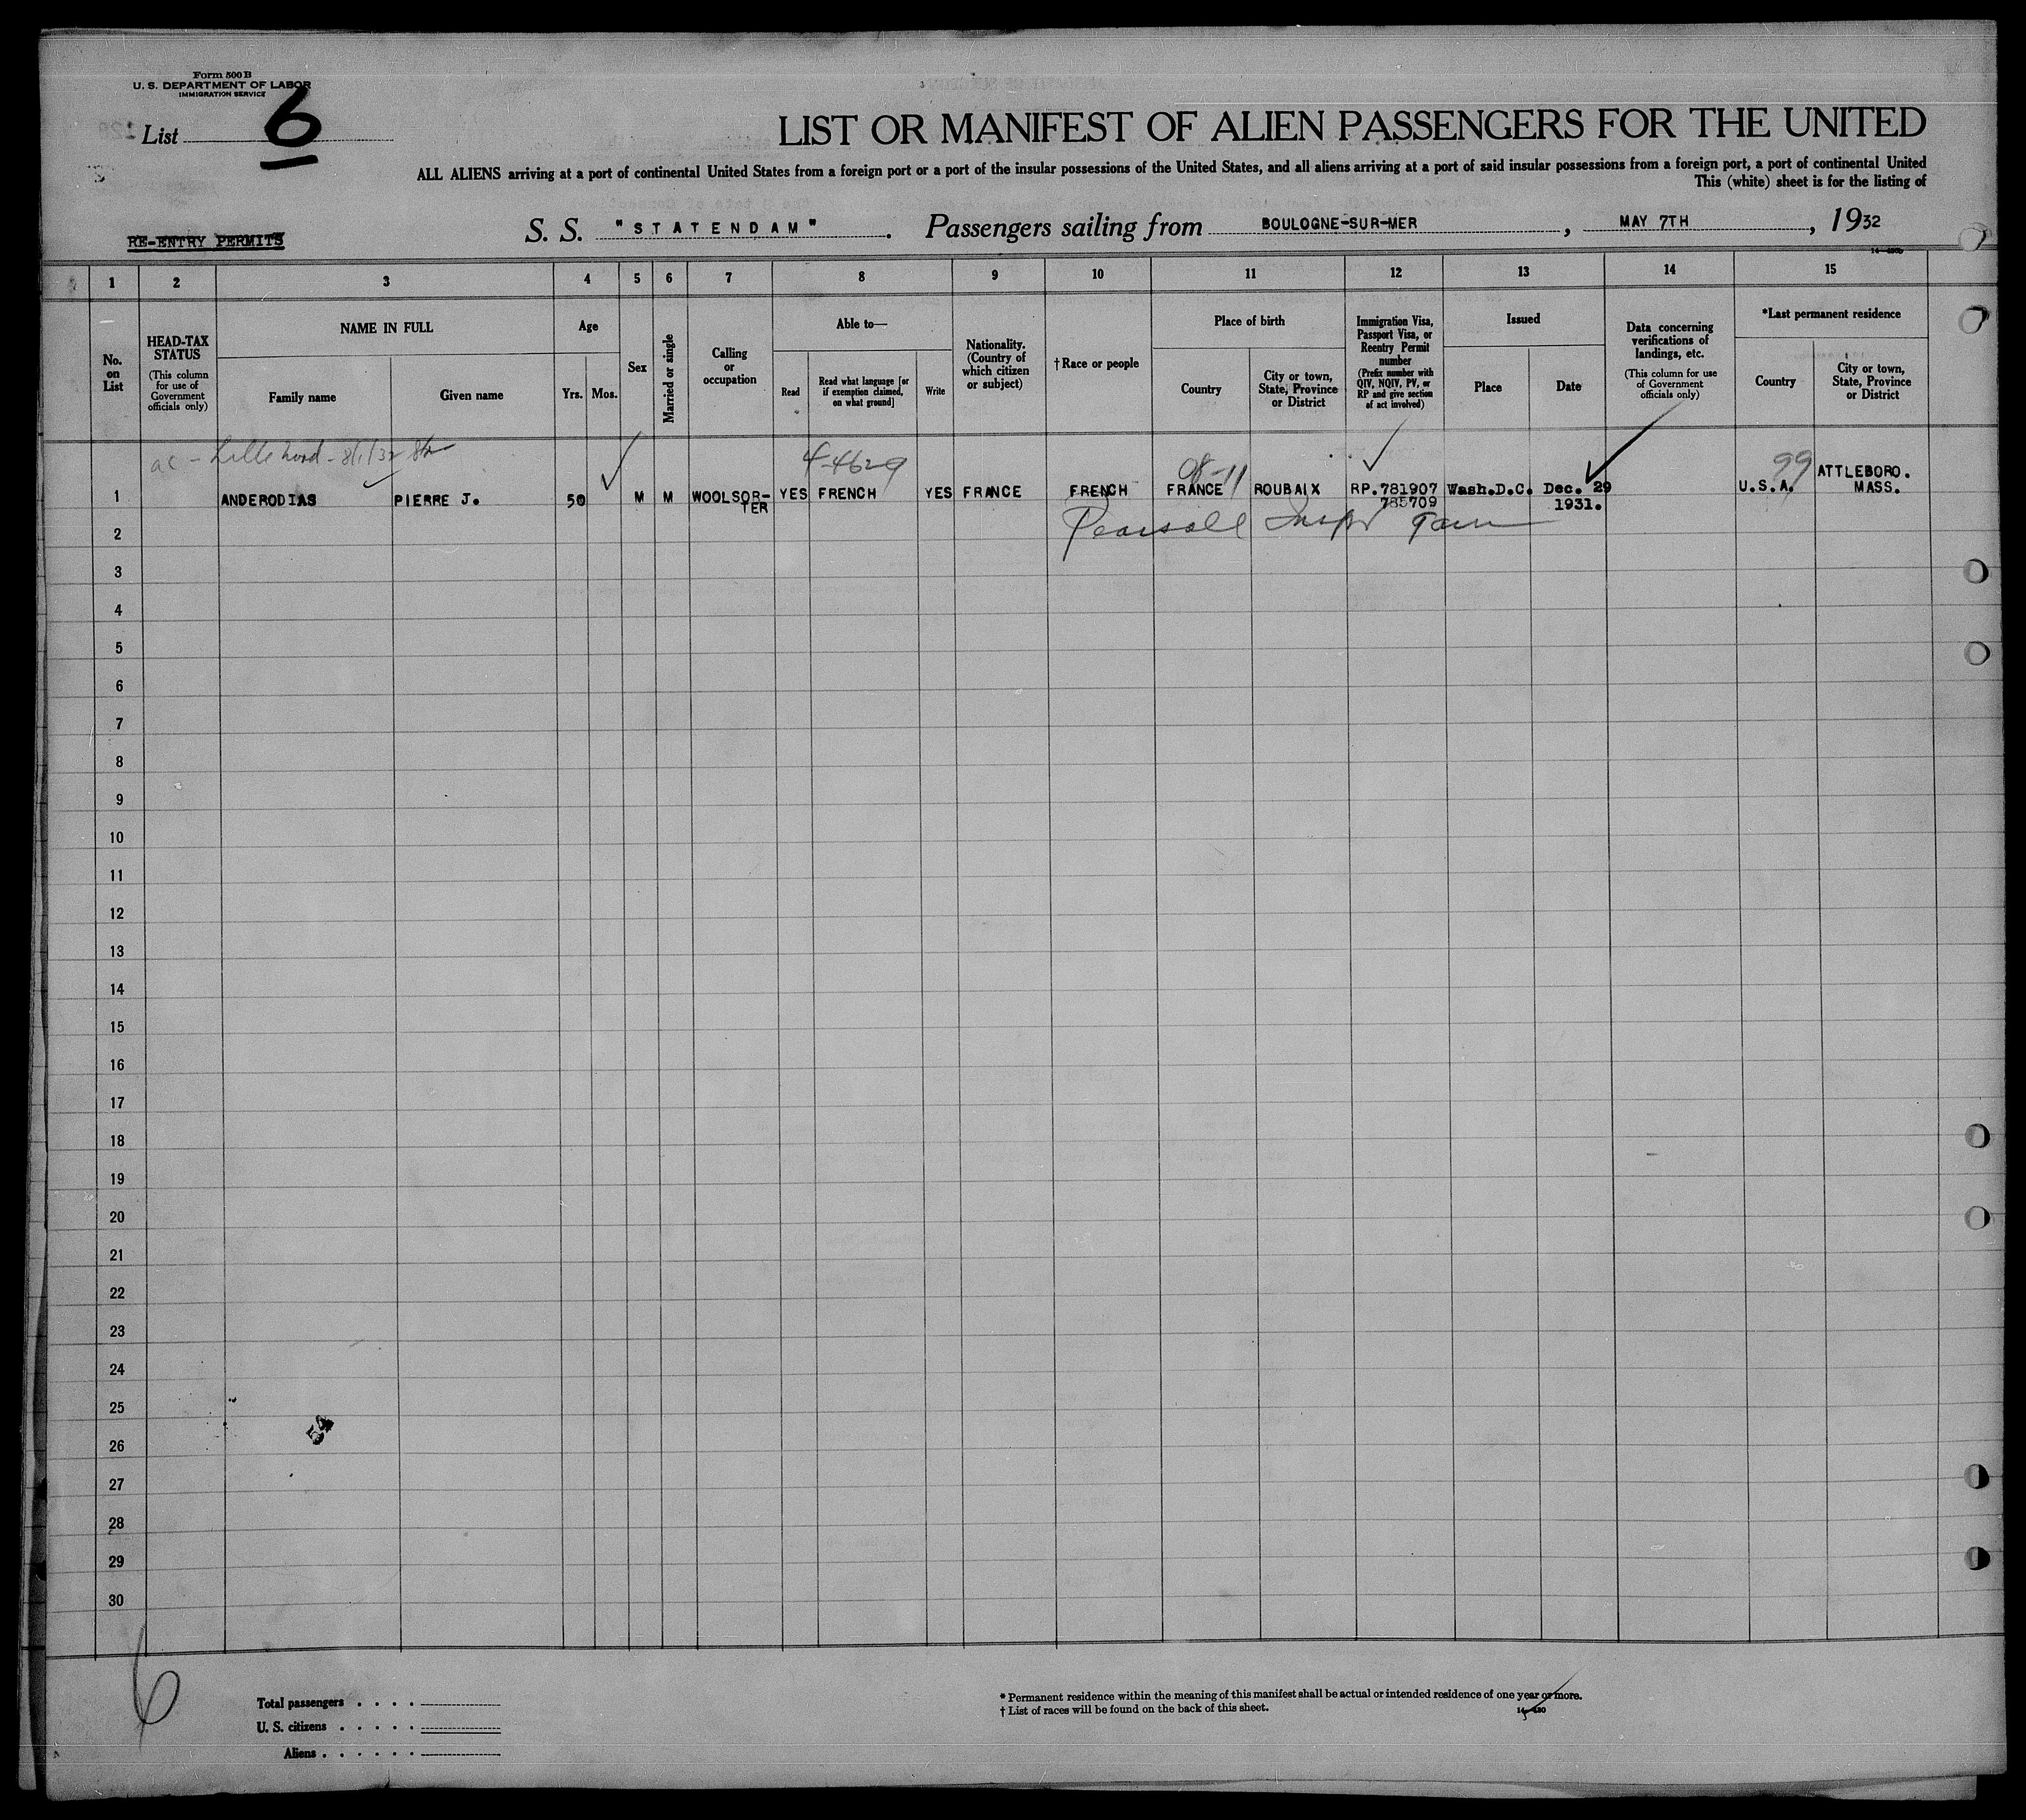 Form 500 B
U. S. DEPARTMENT OF LABOR
IMMIGRATION SERVICE
List 6
LIST OR MANIFEST OF ALIEN PASSENGERS FOR THE UNITED
ALL ALIENS arriving at a port of continental United States from a foreign port or a port of the insular possessions of the United States, and all aliens arriving at a port of said insular possessions from a foreign port, a port of continental United
This (white) sheet is for the listing of
RE-ENTRY PERMITS
S. S. "STATENDAM". Passengers sailing from BOULOGNE-SUR-MER, MAY 7TH, 1932
1 2 3 4 5 6 7 8 9 10 11 12 13 14 15
No. on List
HEAD-TAX STATUS
(This column for use of Government officials only)
NAME IN FULL
Family name
Given name
Age
Yrs.
Mos.
Sex
Married or single
Calling or occupation
Able to—
Read
Read what language [or if exemption claimed, on what ground]
Write
Nationality. (Country of which citizen or subject)
†Race or people
Place of birth
Country
City or town, State, Province or District
Immigration Visa, Passport Visa, or Reentry Permit number
(Prefix number with QIV, NQIV, PV, or RP and give section of act involved)
Issued
Place
Date
Data concerning verifications of landings, etc.
(This column for use of Government officials only)
*Last permanent residence
Country
City or town, State, Province or District
4-4629
08-11
99
1 ANDERODIAS PIERRE J. 50 M M WOOLSOR-TER YES FRENCH YES FRANCE FRENCH FRANCE ROUBAIX RP.781907 Wash.D.C. Dec. 29 1931. U.S.A. ATTLEBORO. MASS.
785709
Pearsall Inspr
2
3
4
5
6
7
8
9
10
11
12
13
14
15
16
17
18
19
20
21
22
23
24
25
54
26
27
28
29
30
6
Total passengers . . . .
U. S. citizens . . . . .
Aliens . . . . . .
* Permanent residence within the meaning of this manifest shall be actual or intended residence of one year or more.
† List of races will be found on the back of this sheet.